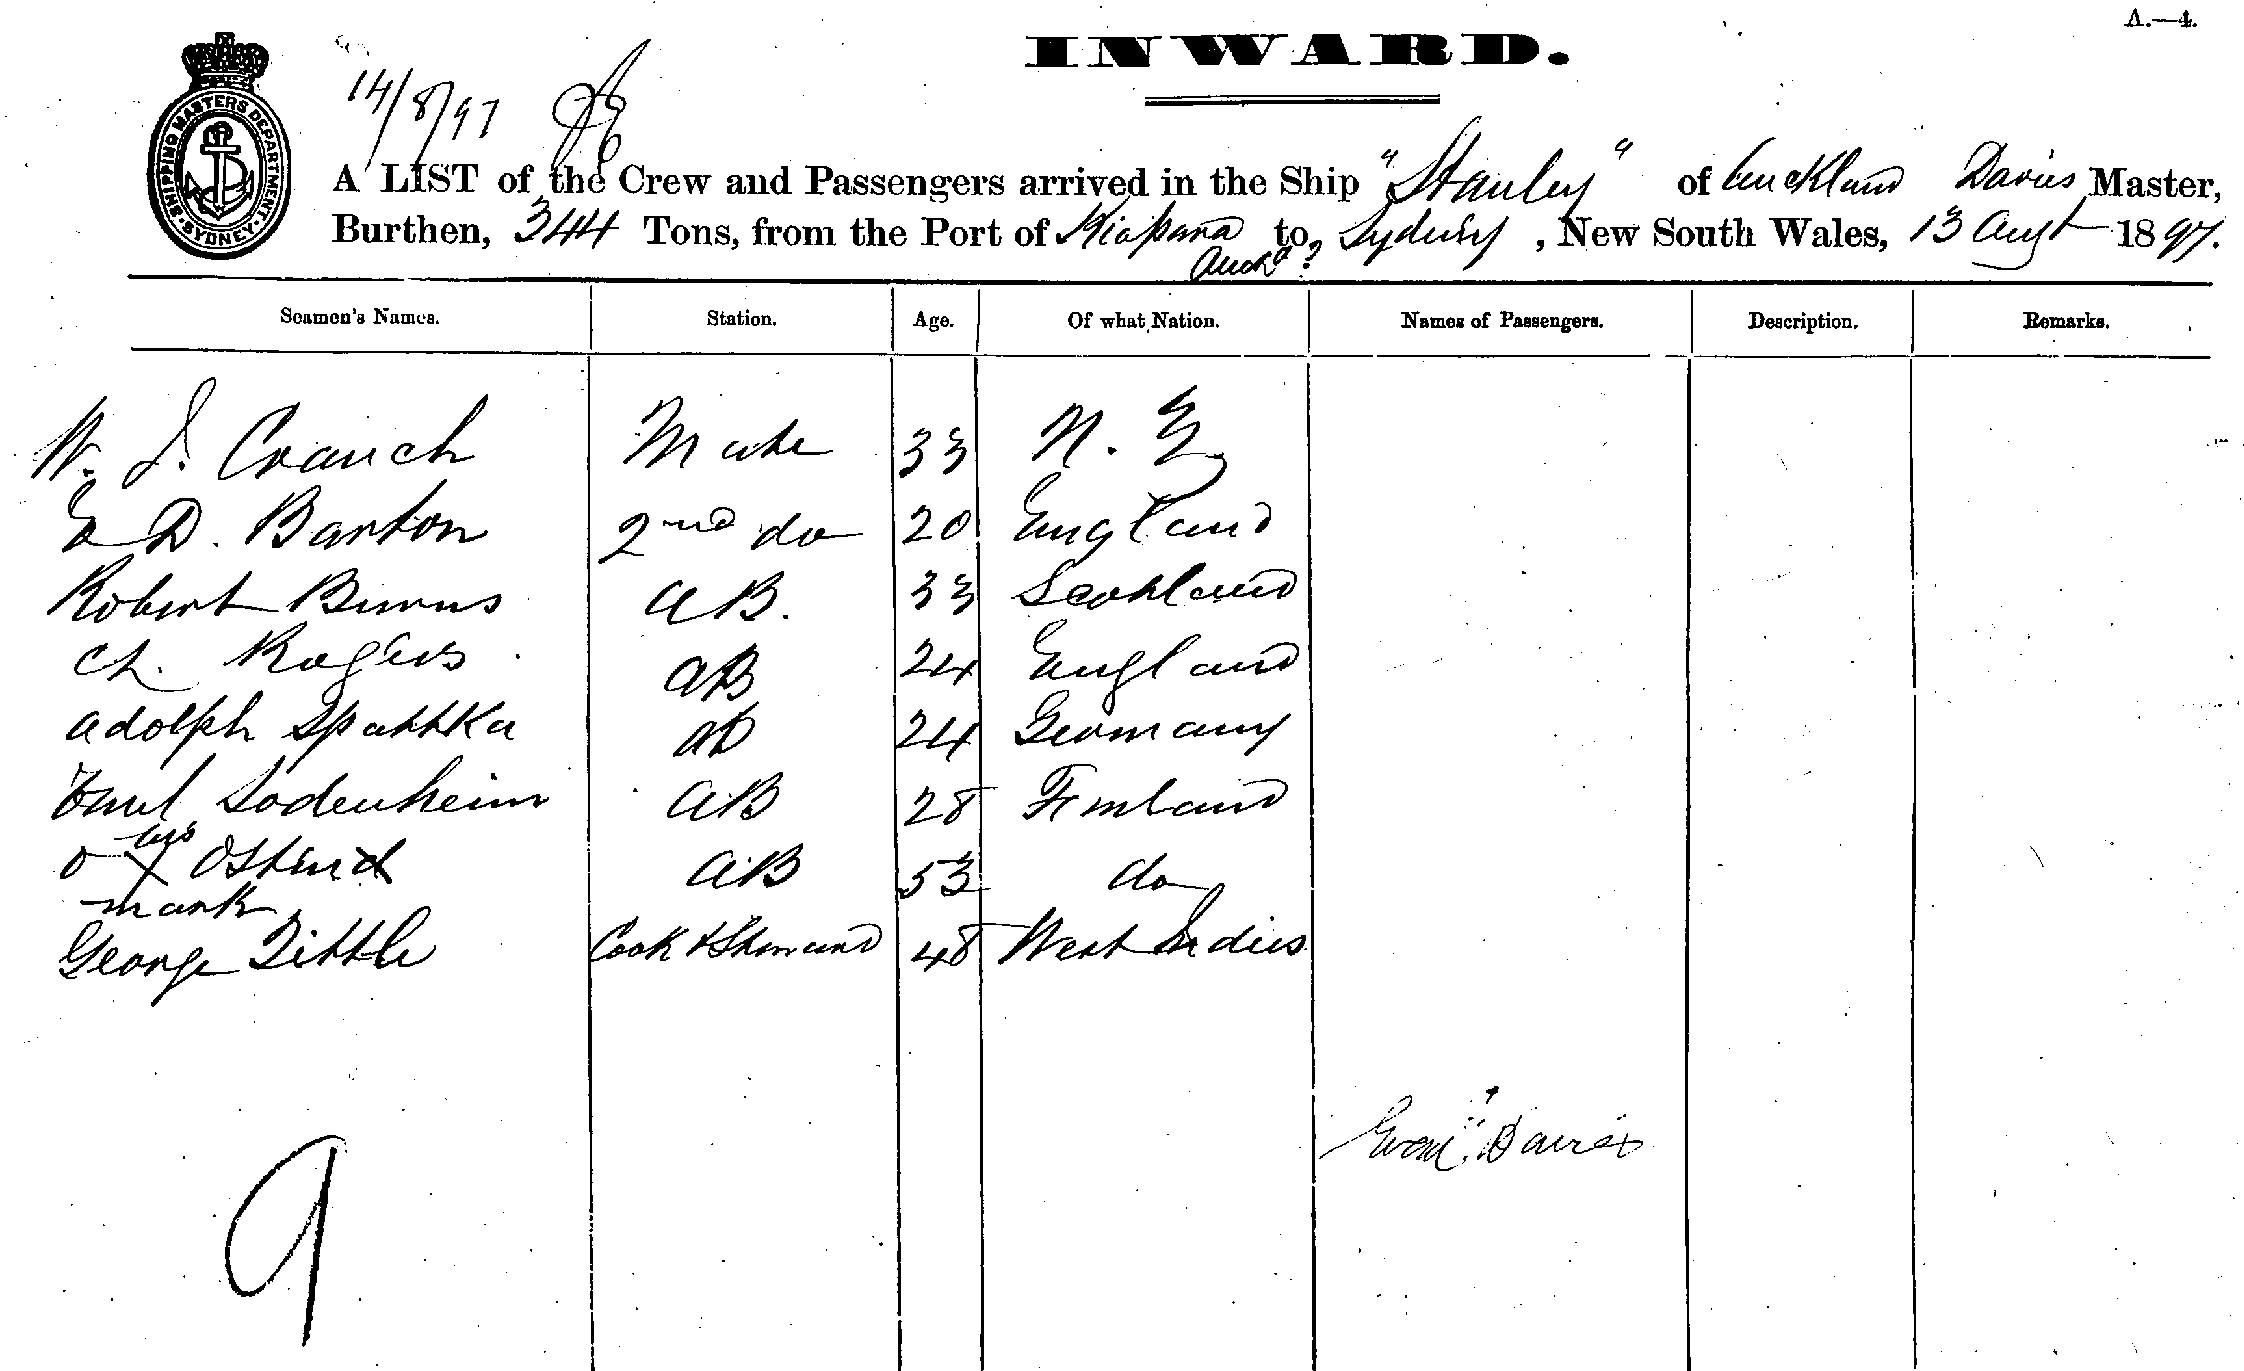 A.—4.
INWARD.
SHIPPING MASTERS DEPARTMENT. SYDNEY.
14/8/97
A LIST of the Crew and Passengers arrived in the Ship "Stanley" of Auckland Davies Master,
Burthen, 344 Tons, from the Port of to Sydney, New South Wales, 13 Augt 1897.
Auckd?
Seamen's Names. Station. Age. Of what Nation. Names of Passengers. Description. Remarks.
W. J. Crauch Mate 33 N. Z
E D. Barton 2nd do 20 England
Robert Burns AB. 33 Scotland
Ch. Rogers AB 24 England
Adolph Spattka AB 24 Germany
Emil Sodenheim AB 28 Finland
his
O X Ostend AB 53 do
mark
George Tittle Cook & Steward 48 West Indies
Evan Davies
9